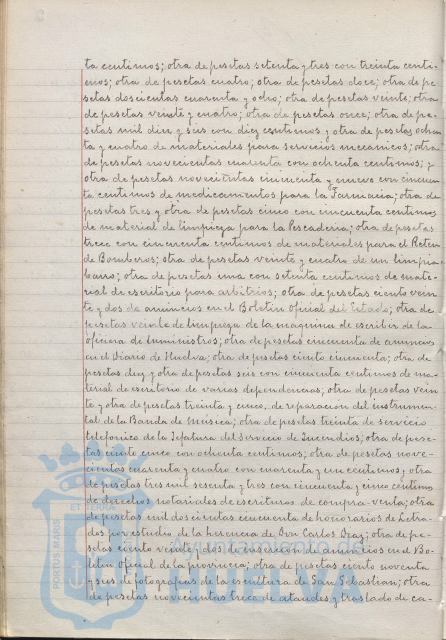 ta centimos; otra de pesetas setenta y tres con treinta centi-
mos; otra de pesetas cuatro; otra de pesetas doce; otra de pe-
setas doscientas cuarenta y ocho; otra de pesetas veinte; otra
de pesetas veinte y cuatro; otra de pesetas once; otra de pe-
setas mil diez y seis con diez centimos y otra de pesetas ochen
ta y cuatro de materiales para servicios mecanicos; otra
de pesetas novecientas cuarenta con ochenta centimos; y
otra de pesetas novecientas cincuenta y nueve con cincuen
ta centimos de medicamentos para la Farmacia; otra de
pesetas tres y otra de pesetas cinco con cincuenta centimos
de material de limpieza para la Pescaderia; otra de pesetas
trece con cincuenta centimos de materiales para el Reten
de Bomberos; otra de pesetas veinte y cuatro de un limpia-
barro; otra de pesetas una con setenta centimos de mate-
rial de escritorio para arbitrios; otra de pesetas ciento vein
te y dos de anuncios en el Boletin oficial del Estado; otra de
pesetas veinte de limpieza de la maquina de escribir de la
oficina de Suministros; otra de pesetas cincuenta de anuncios
en el Diario de Huelva; otra de pesetas ciento cincuenta; otra de
pesetas diez y otra de pesetas seis con cincuenta centimos de ma-
terial de escritorio de varias dependencias; otra de pesetas vein
te y otra de pesetas treinta y cinco, de reparacion del instrumen-
tal de la Banda de musica; otra de pesetas treinta de servicio
telefonico de la Jefatura del servicio de Incendios; otra de pese-
tas ciento cinco con ochenta centimos; otra de pesetas nove-
cientas cuarenta y cuatro con cuarenta y un centimos, y otra
de pesetas tres mil sesenta y tres con cincuenta y cinco centimos
de derechos notariales de escrituras de compra-venta; otra
de pesetas mil doscientas cincuenta de honorarios de Letra-
dos por estudio de la herencia de Don Carlos Diaz; otra de pe-
setas ciento veinte y dos de insercion de anuncios en el Bo-
letin oficial de la provincia; otra de pesetas ciento noventa
y seis de fotografias de la escultura de San Sebastian; otra
de pesetas novecientas trece de ataudes y traslado de ca-
PORTUS MARIS
ET TERRAE